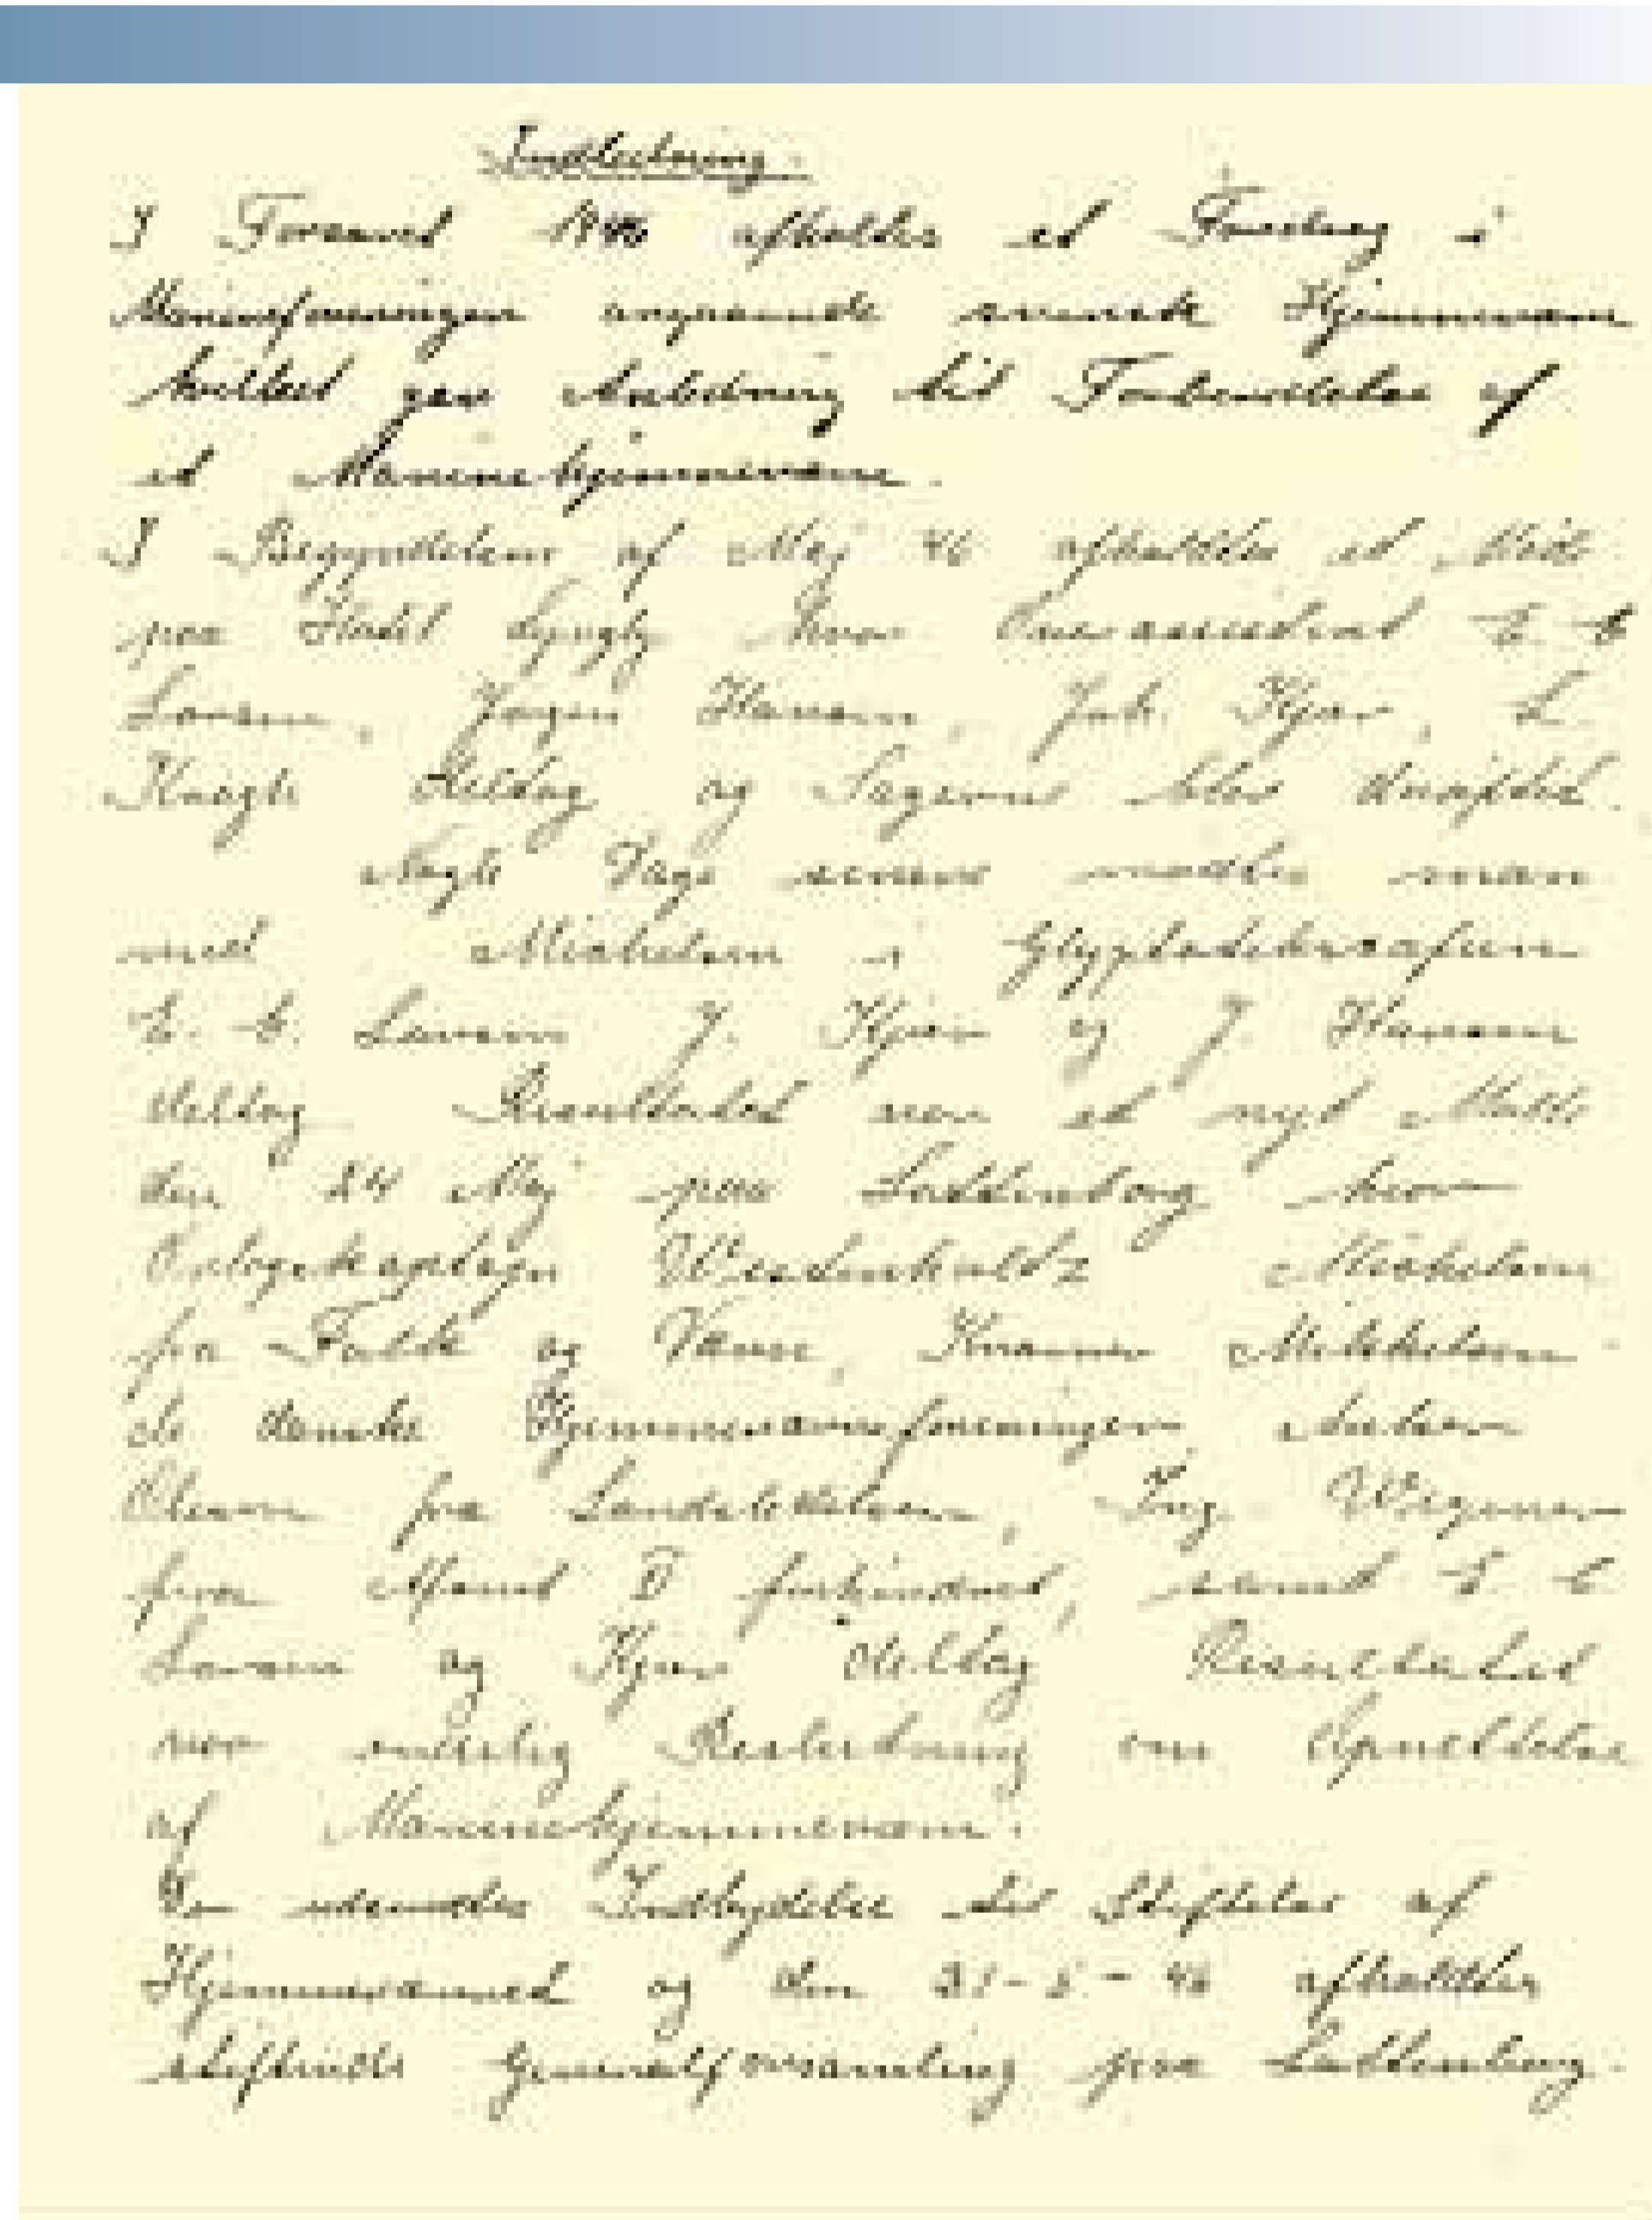 Indledning.
I Foraaret 1946 afholdes et Foredrag i
Marineforeningen angaaende svensk Hjemmeværn
hvilket gav Anledning til Forberedelse af
et Marinehjemmeværn.
I Begyndelsen af Maj 46 afholdtes et Møde
paa Hotel Lyngby hvor E. C.
Larsen, Jørgen Hansen, Joh. Kjær, L
deltog og Sagerne blev drøftet.
Nogle Dage senere mødtes man
med Michelsen i Glyptotekscafeen
E. C. Larsen J. Kjær og J. Hansen
deltog Resultatet var et nyt Møde
den 24 Maj paa hvor
Orlogskaptajn Westenholtz Michelsen
fra Falck og Værn, Mikkelsen
de danske Hjemmeværnsforeninger, Anton
Olesen fra Landsledelsen, Ing. Wegener
fra forhindret, samt E C
Larsen og Kjær deltog Resultatet
var endelig Beslutning om Oprettelse
af Marinehjemmeværn.
Der udsendtes Indbydelse til Stiftelse af
Hjemmeværnet og den 31-5-46 afholdtes
stiftende Generalforsamling paa